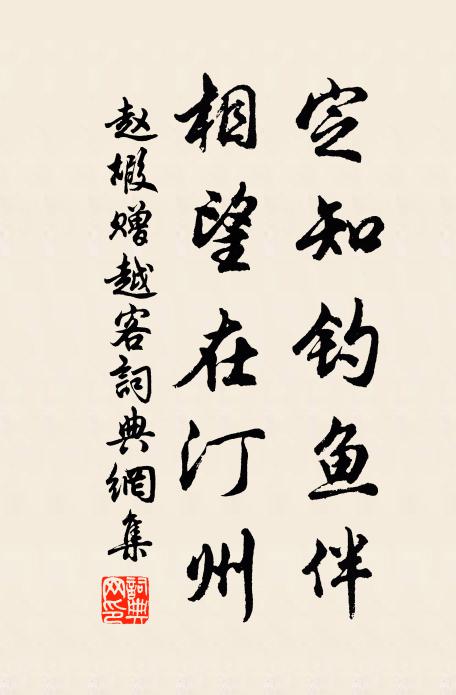 定知钓鱼伴
相望在汀州
赵嘏赠越客詞典網集
詞典网印